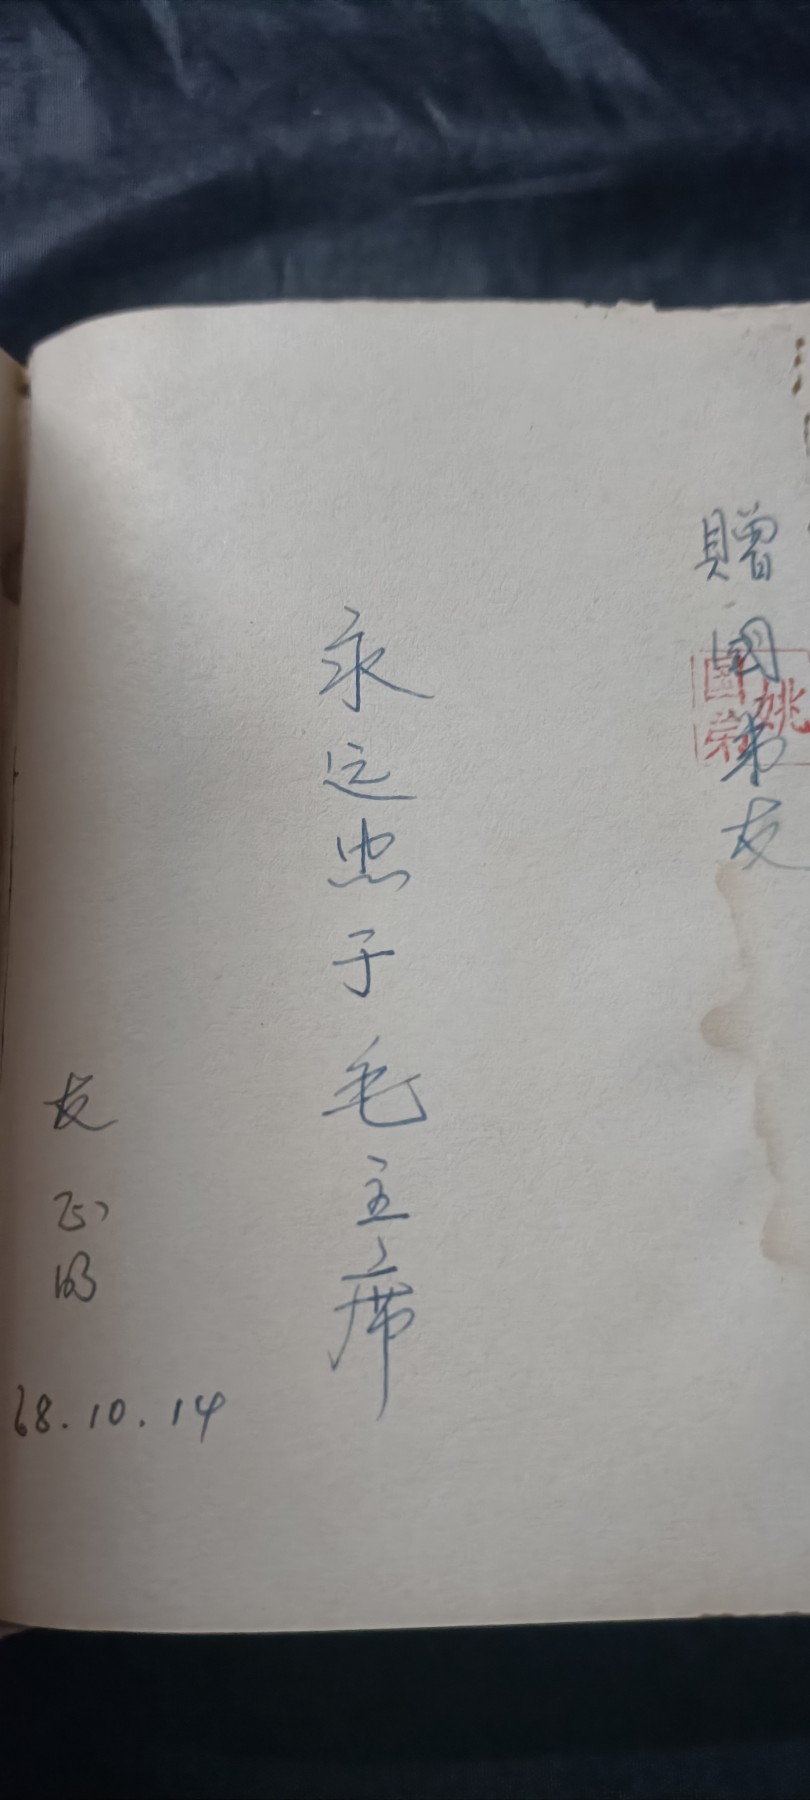 贈国荣友
姚国荣
永远忠于毛主席
友
68.10.14